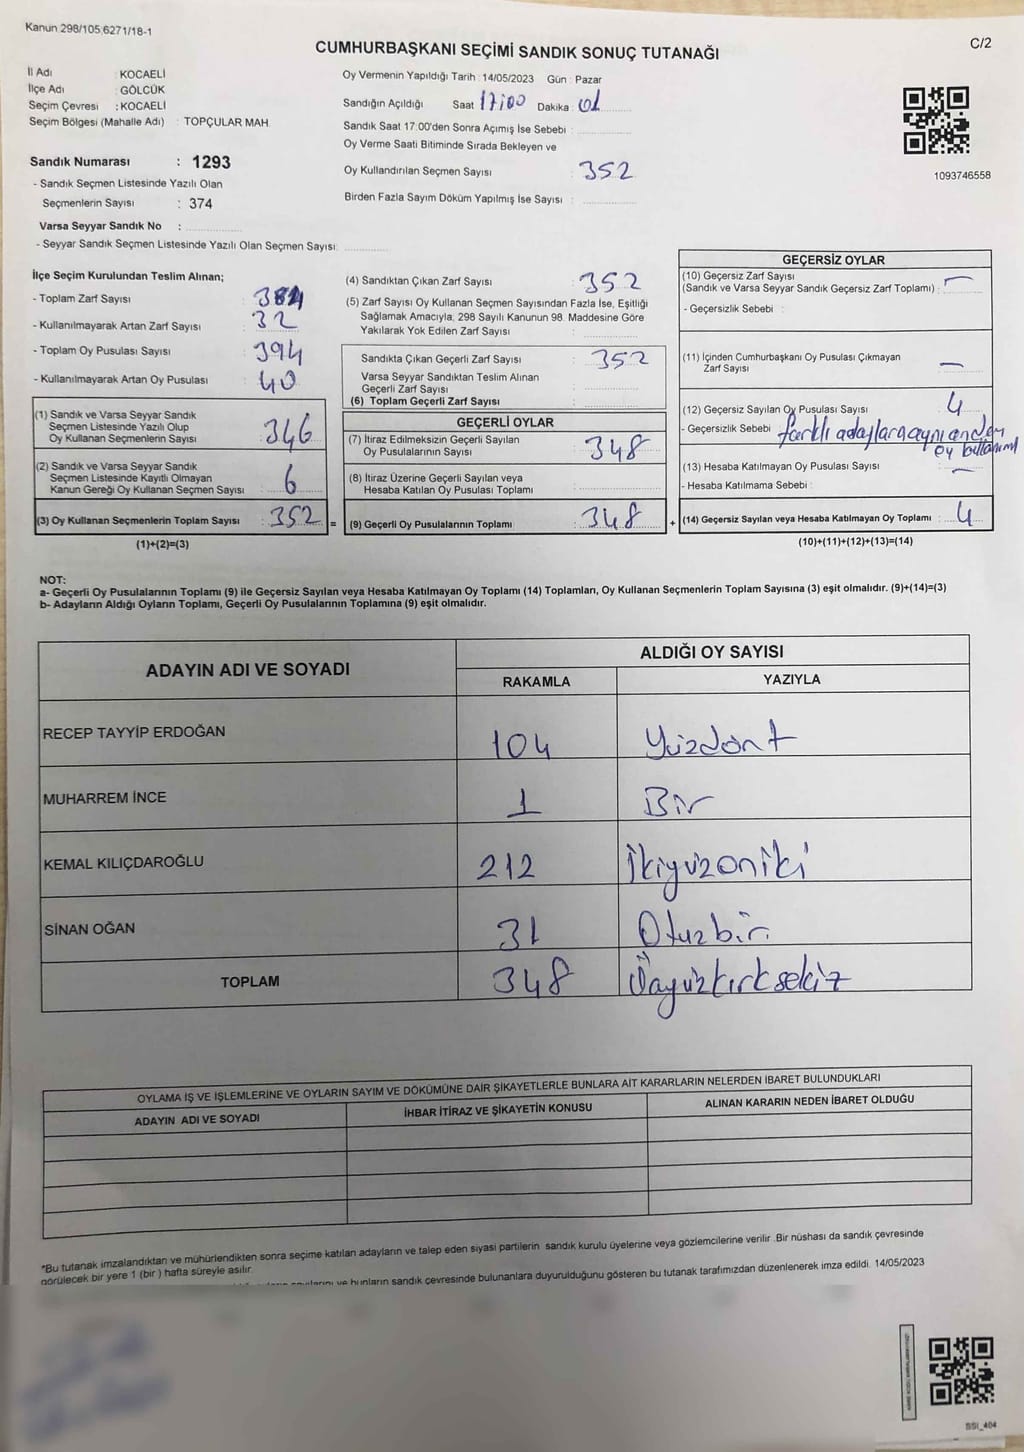 Kanun 298/105,6271/18-1
C/2
CUMHURBAŞKANI SEÇİMİ SANDIK SONUÇ TUTANAĞI
İl Adı : KOCAELİ
İlçe Adı : GÖLCÜK
Seçim Çevresi : KOCAELİ
Seçim Bölgesi (Mahalle Adı) : TOPÇULAR MAH.
Sandık Numarası : 1293
- Sandık Seçmen Listesinde Yazılı Olan
Seçmenlerin Sayısı : 374
Varsa Seyyar Sandık No :
- Seyyar Sandık Seçmen Listesinde Yazılı Olan Seçmen Sayısı:
Oy Vermenin Yapıldığı Tarih : 14/05/2023 Gün : Pazar
Sandığın Açıldığı Saat 17:00 Dakika : 01
Sandık Saat 17:00'den Sonra Açımış İse Sebebi :
Oy Verme Saati Bitiminde Sırada Bekleyen ve
Oy Kullandırılan Seçmen Sayısı : 352
Birden Fazla Sayım Döküm Yapılmış İse Sayısı :
1093746558
İlçe Seçim Kurulundan Teslim Alınan;
- Toplam Zarf Sayısı : 384
- Kullanılmayarak Artan Zarf Sayısı : 32
- Toplam Oy Pusulası Sayısı : 394
- Kullanılmayarak Artan Oy Pusulası : 40
(1) Sandık ve Varsa Seyyar Sandık
Seçmen Listesinde Yazılı Olup
Oy Kullanan Seçmenlerin Sayısı : 346
(2) Sandık ve Varsa Seyyar Sandık
Seçmen Listesinde Kayıtlı Olmayan
Kanun Gereği Oy Kullanan Seçmen Sayısı : 6
(3) Oy Kullanan Seçmenlerin Toplam Sayısı : 352
(1)+(2)=(3)
(4) Sandıktan Çıkan Zarf Sayısı : 352
(5) Zarf Sayısı Oy Kullanan Seçmen Sayısından Fazla İse, Eşitliği
Sağlamak Amacıyla, 298 Sayılı Kanunun 98. Maddesine Göre
Yakılarak Yok Edilen Zarf Sayısı :
Sandıkta Çıkan Geçerli Zarf Sayısı : 352
Varsa Seyyar Sandıktan Teslim Alınan
Geçerli Zarf Sayısı :
(6) Toplam Geçerli Zarf Sayısı :
GEÇERLİ OYLAR
(7) İtiraz Edilmeksizin Geçerli Sayılan
Oy Pusulalarının Sayısı : 348
(8) İtiraz Üzerine Geçerli Sayılan veya
Hesaba Katılan Oy Pusulası Toplamı :
= (9) Geçerli Oy Pusulalarının Toplamı : 348
GEÇERSİZ OYLAR
(10) Geçersiz Zarf Sayısı
(Sandık ve Varsa Seyyar Sandık Geçersiz Zarf Toplamı) : -
- Geçersizlik Sebebi :
(11) İçinden Cumhurbaşkanı Oy Pusulası Çıkmayan
Zarf Sayısı : -
(12) Geçersiz Sayılan Oy Pusulası Sayısı : 4
- Geçersizlik Sebebi : farklı adaylara aynı anda
oy kullanımı
(13) Hesaba Katılmayan Oy Pusulası Sayısı : -
- Hesaba Katılmama Sebebi :
+ (14) Geçersiz Sayılan veya Hesaba Katılmayan Oy Toplamı : 4
(10)+(11)+(12)+(13)=(14)
NOT:
a- Geçerli Oy Pusulalarının Toplamı (9) ile Geçersiz Sayılan veya Hesaba Katılmayan Oy Toplamı (14) Toplamları, Oy Kullanan Seçmenlerin Toplam Sayısına (3) eşit olmalıdır. (9)+(14)=(3)
b- Adayların Aldığı Oyların Toplamı, Geçerli Oy Pusulalarının Toplamına (9) eşit olmalıdır.
ADAYIN ADI VE SOYADI
ALDIĞI OY SAYISI
RAKAMLA YAZIYLA
RECEP TAYYİP ERDOĞAN 104 Yüzdört
MUHARREM İNCE 1 Bir
KEMAL KILIÇDAROĞLU 212 İkiyüzoniki
SİNAN OĞAN 31 Otuzbir
TOPLAM 348 Üçyüzkırksekiz
OYLAMA İŞ VE İŞLEMLERİNE VE OYLARIN SAYIM VE DÖKÜMÜNE DAİR ŞİKAYETLERLE BUNLARA AİT KARARLARIN NELERDEN İBARET BULUNDUKLARI
ADAYIN ADI VE SOYADI İHBAR İTİRAZ VE ŞİKAYETİN KONUSU ALINAN KARARIN NEDEN İBARET OLDUĞU
*Bu tutanak imzalandıktan ve mühürlendikten sonra seçime katılan adayların ve talep eden siyasi partilerin sandık kurulu üyelerine veya gözlemcilerine verilir. Bir nüshası da sandık çevresinde
görülecek bir yere 1 (bir) hafta süreyle asılır.
ve bunların sandık çevresinde bulunanlara duyurulduğunu gösteren bu tutanak tarafımızdan düzenlenerek imza edildi. 14/05/2023
SSI_404